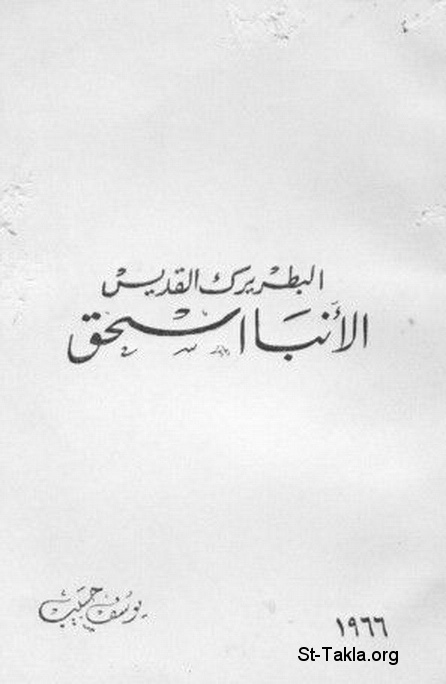 البطريرك القديس
الأنبا اسحق
يوسف حبيب
١٩٦٦
St-Takla.org